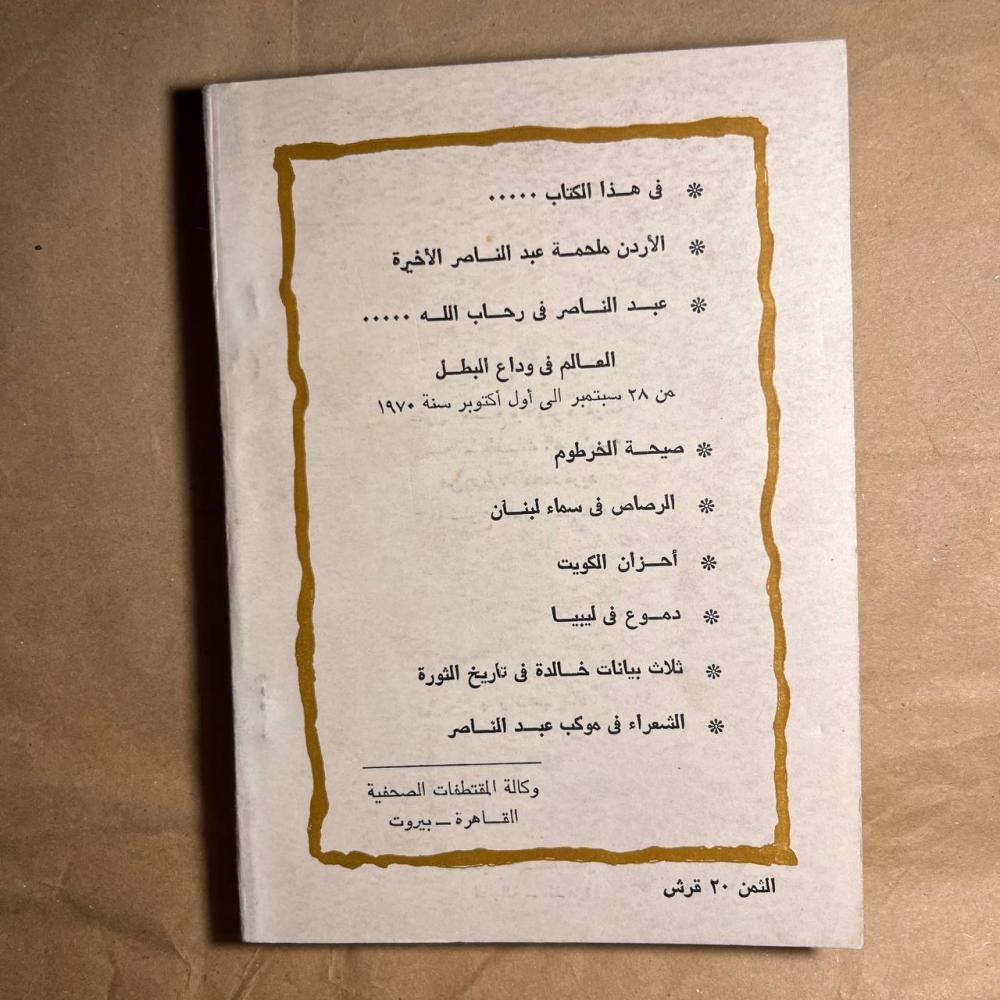 ❊ فى هـذا الكتاب .....
❊ الأردن ملحمـة عبد النـاصر الأخيرة
❊ عبـد الناصر فى رحـاب اللـه .....
العـالم فى وداع البطـل
من ٢٨ سبتمبر الى أول أكتوبر سنة ١٩٧٠
❊ صيحـة الخرطوم
❊ الرصاص فى سماء لبنـان
❊ أحـزان الكويت
❊ دمـوع فى ليبيـا
❊ ثلاث بيانات خـالدة فى تاريخ الثورة
❊ الشعراء فى موكب عبـد النـاصر
وكالة المقتطفات الصحفية
القـاهرة ـ بيروت
الثمن ٢٠ قرش